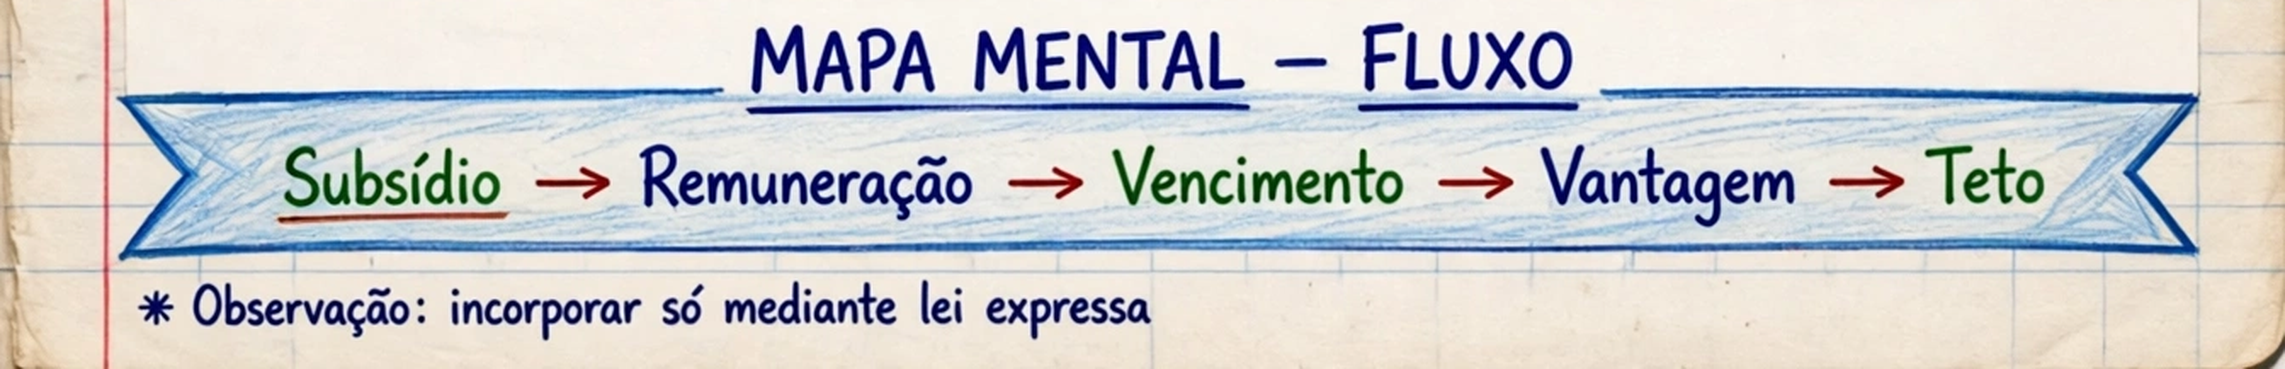 MAPA MENTAL – FLUXO
Subsídio → Remuneração → Vencimento → Vantagem → Teto
* Observação: incorporar só mediante lei expressa